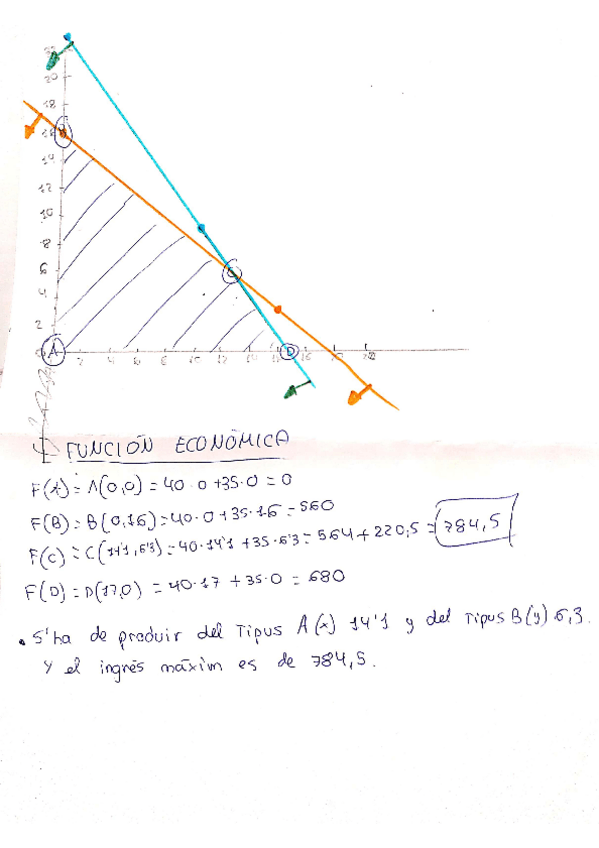 20
18
16
14
12
10
8
6
4
2
A
C
D
2 4 6 8 10 12 14 16
FUNCIÓN ECONÓMICA
F(A) = A(0,0) = 40·0 +35·0 = 0
F(B) = B(0,16) = 40·0 + 35·16 = 560
F(C) = C(14'1,6'3) = 40·14'1 + 35·6'3 = 564 + 220,5 = 784,5
F(D) = D(17,0) = 40·17 + 35·0 = 680
• S'ha de produir del Tipus A(x) 14'1 y del Tipus B(y) 6,3.
Y el ingrés máxim es de 784,5.